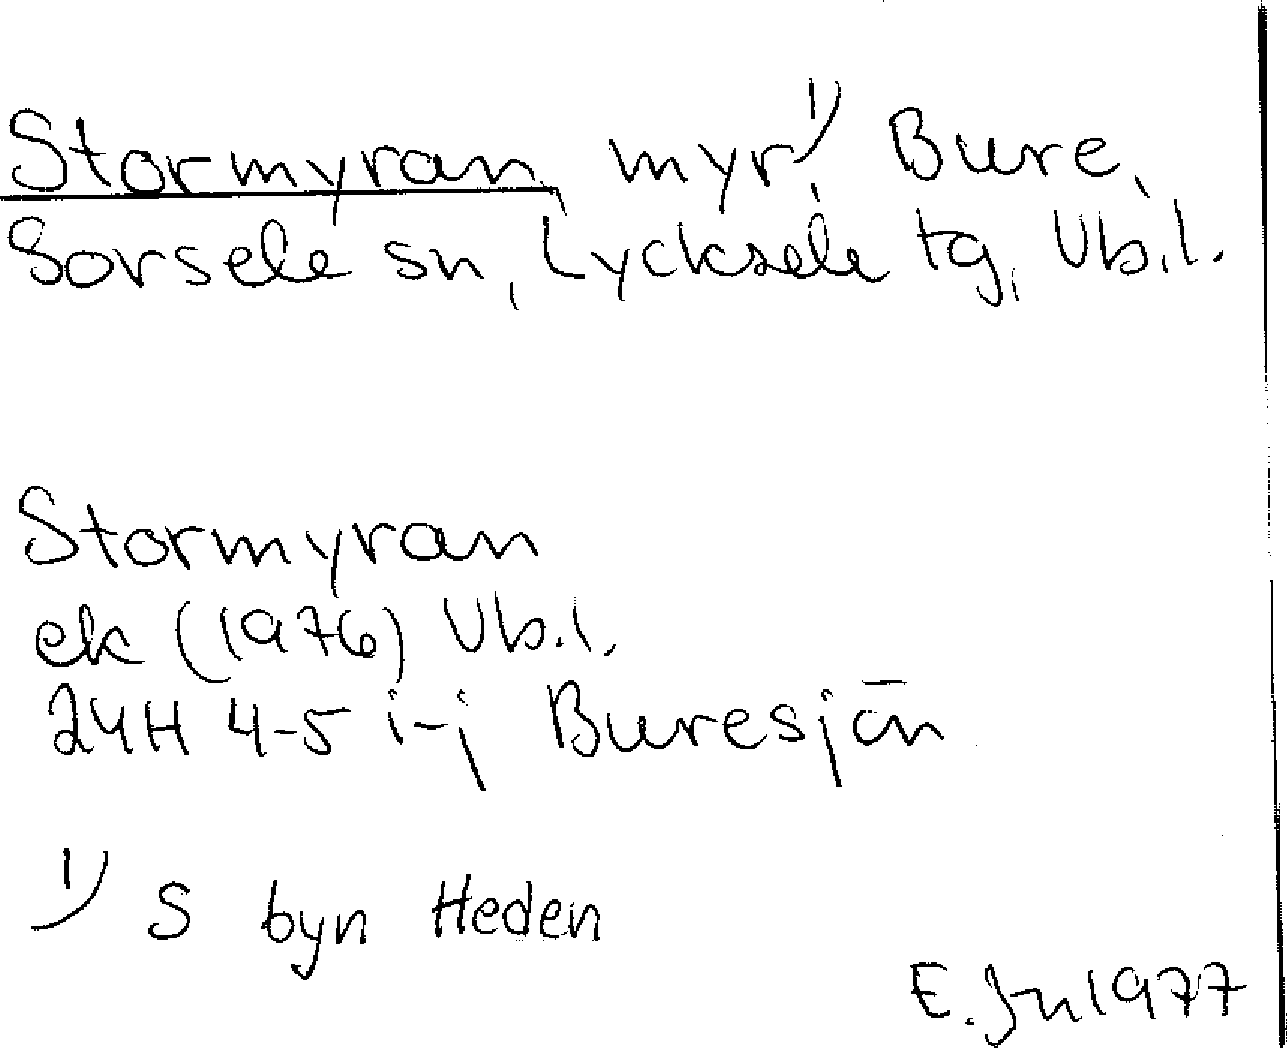 Stormyran, myr¹⁾, Bure,
Sorsele sn, Lycksele tg, Vb.l.
Stormyran
ek (1976) Vb.l.
24H 4-5 i-j Buresjön
¹⁾ S byn Heden
E. Jn 1977